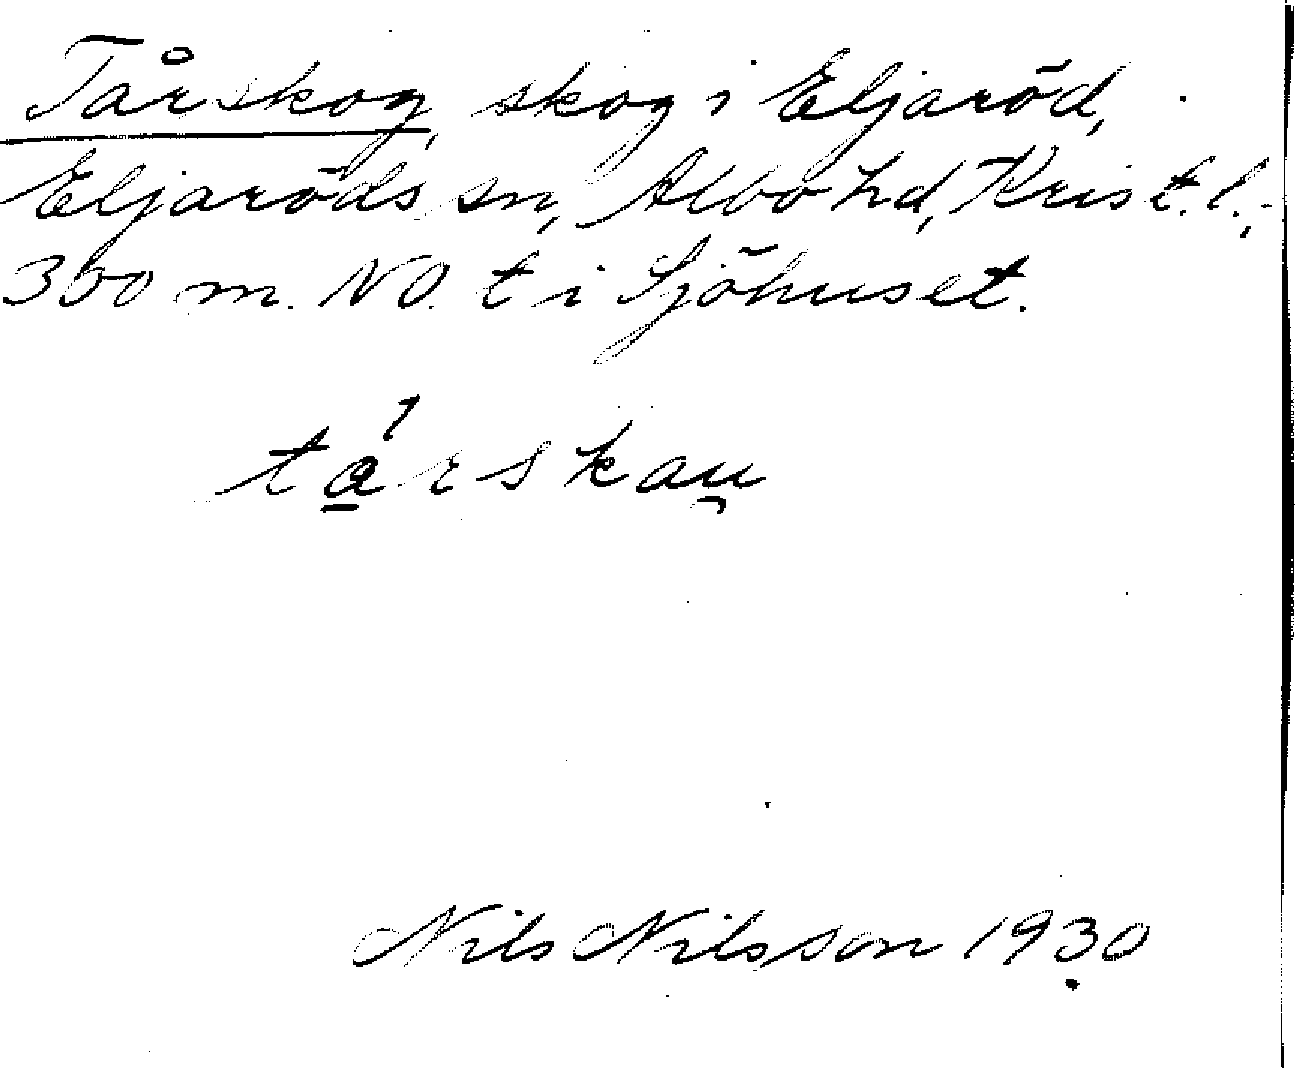 Tårskog, skog i Eljaröd,
Eljaröds sn, Albo hd, Krist. l.,
300 m. NO. t i Sjöhuset.
tá̲rskau̯
Nils Nilsson 1930